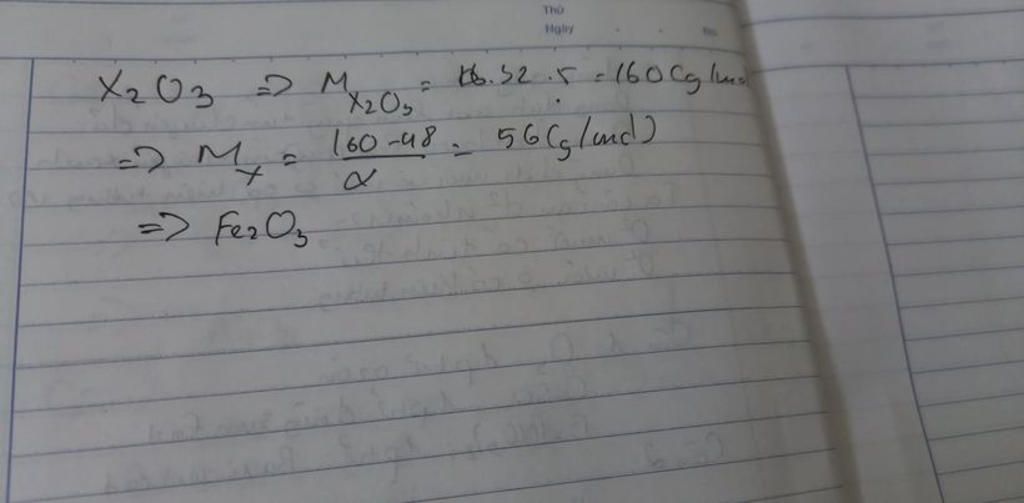 Thứ
Ngày No
X2O3 => M X2O3 = 32.5 = 160 (g/mol
=> Mx = 160-48 / 2 = 56 (g/mol)
=> Fe2O3